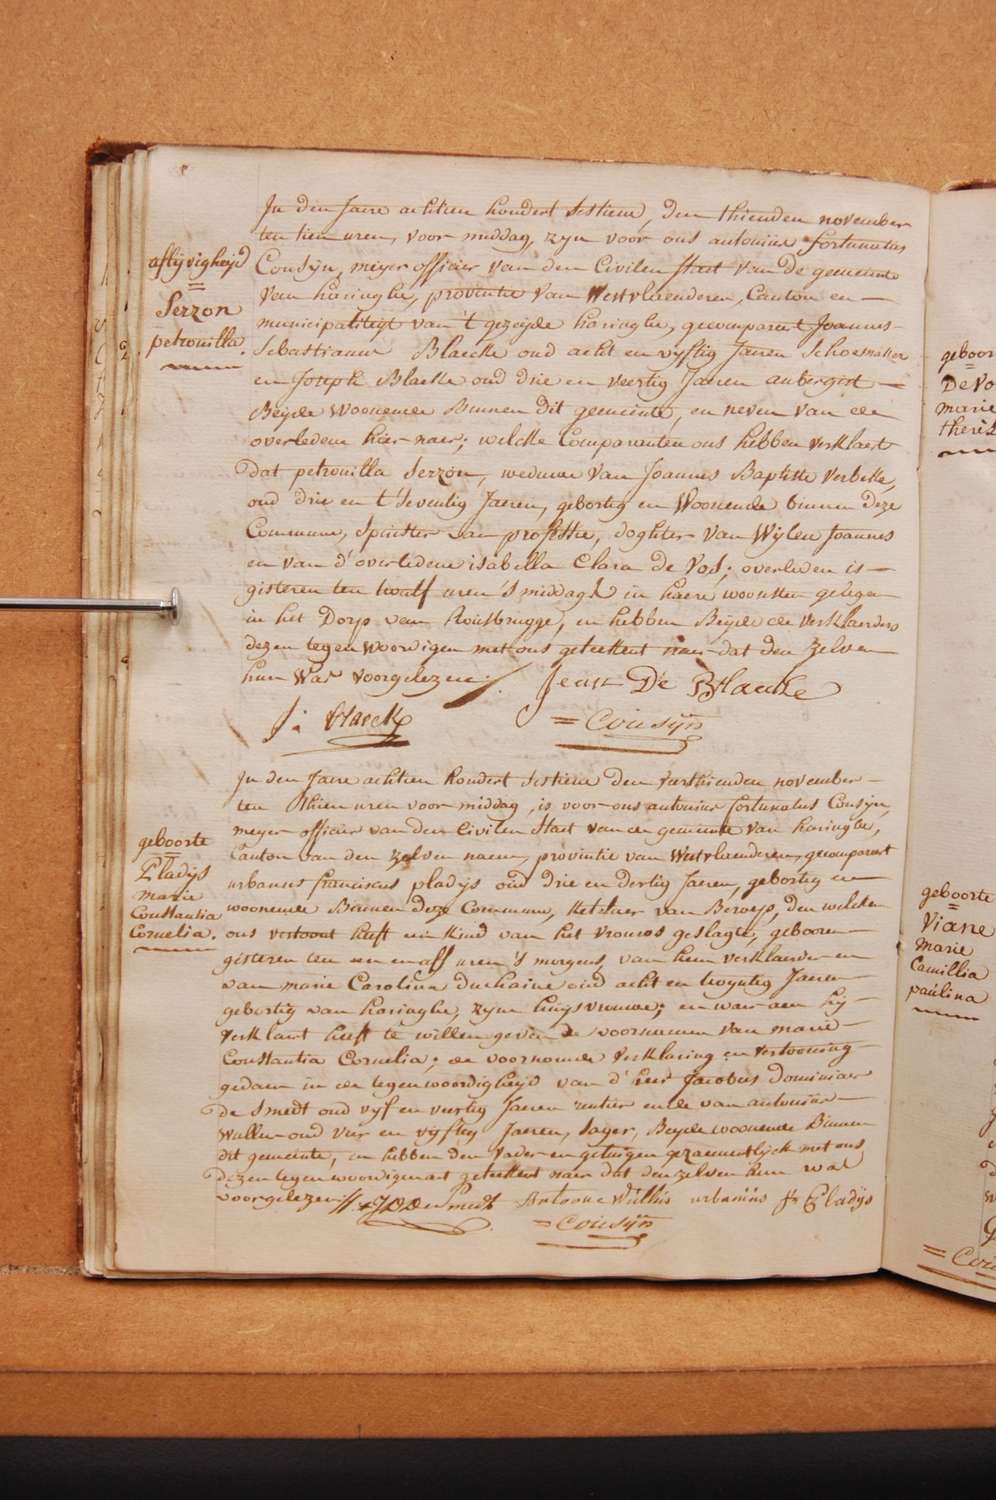 In den Jaere achtien hondert sestiene, den thienden november
ten tien uren, voor middag, zijn voor ons antonius fortunatus
Cousijn, meyer officier van den Civilen Staet van de gemeente
van haringhe, provintie van Westvlaenderen, Canton en
municipaliteyt van 't gezeijde haringhe, gecompareert Joannes
Sebastiaan Blaecke oud acht en vyftig Jaeren Schoenmaker
en Joseph Blaecke oud drie en veertig Jaeren aubergist
Beijde Woonende Binnen dit gemeente, en neven van de
overledene hier naer; welcke Comparanten ons hebben verklaert
dat petronilla Serzon, weduwe van Joannes Baptiste Verbeke,
oud drie en t'seventig Jaeren, gebortig en Woonende binnen deze
Commune, Spinster van professie, doghter van Wijlen Joannes
en van d'overledene isabella Clara de Vos; overleden is
gisteren ten twalf uren 's middags in haere woonsten gelegen
in het Dorp van Rousbrugge, en hebben Beijde de verklaerders
dezen tegenwoordigen met ons geteekent naer dat den zelven
hun Was voorgelezen.
Jean De Blaecke
J: Blaeck
= Cousijn
aflijvigheijd
=
Serzon
petronilla.
In den Jaere achtien hondert sestiene den veerthienden november
ten thien uren voor middag, is voor ons antonius fortunatus Cousijn,
meyer officier van den Civilen Staet van de gemeente van haringhe,
Canton van den zelven naem, provintie van Westvlaenderen, gecompareert
urbanus franciscus pladijs oud drie en dertig Jaeren, gebortig en
woonende Binnen deze Commune, ketelaer van Beroep, den welcken
ons vertoont heeft een kind van het vrouws geslagte, geboren
gisteren ten een en alf uren 's morgens, van hem verklaerder en
van marie Carolina duchaine oud acht en twyntig Jaeren
gebortig van haringhe, zijne huysvrouwe; en waer aen hy
verklaert heeft te willen geven de voornamen van marie
Constantia Cornelia; de voornomde verklaring en vertooning
gedaen in de tegenwoordigheijd van d'heer Jacobus Dominicus
De Smedt oud vyf en veertig Jaeren rentier ende van antonius
Wullus oud vier en vyftig Jaeren, Sager, Beijde woonende Binnen
dit gemeente, en hebben den vader en getuigen gezaementlijck met ons
dezen tegenwoordigen act geteekent naer dat den zelven hun was
voorgelezen // JDDe Smedt Antoone Wullus urbanus fr Pladijs
= Cousijn
geboorte
=
Pladijs
marie
Constantia
Cornelia.
geboor
=
De Vo
marie
geboorte
=
Viane
marie
Camillia
paulina